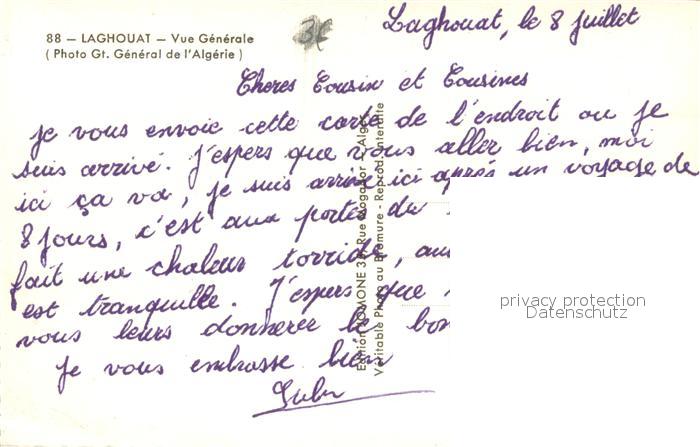 88 – LAGHOUAT – Vue Générale
( Photo Gt. Général de l'Algérie )
3€
Laghouat, le 8 juillet
Cheres Cousin et Cousines
Je vous envoie cette carte de l'endroit ou je
suis arrivé. J'espers que vous aller bien, moi
ici ça va, je suis arrivé ici après un voyage de
8 jours, c'est aux portes du
fait une chaleur torride, au
est tranquille. J'espers que
vous leurs donnerer le bon
Je vous embrasse bien
Edition JOMONE 3, Rue Mogador - Alger
Véritable Photo au Bromure - Reprod. Interdite
privacy protection
Datenschutz